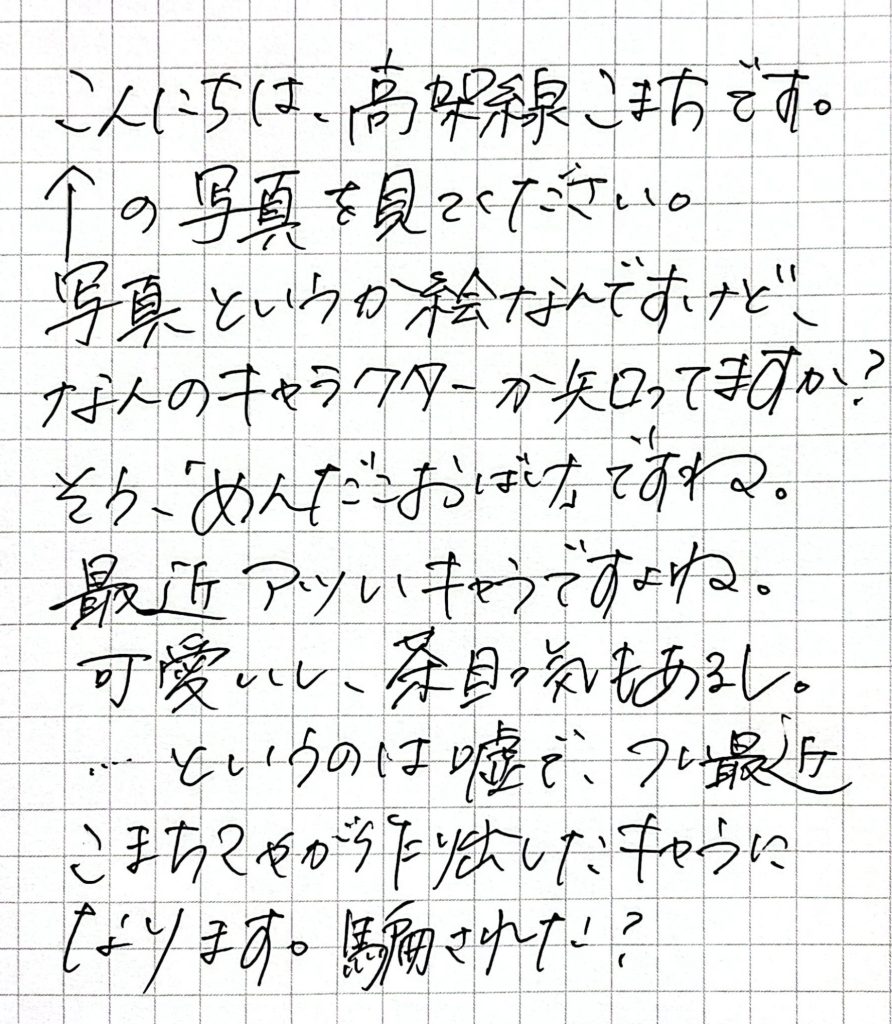 こんにちは、高架線こまちです。
↑の写真を見てください。
写真というか絵なんですけど、
なんのキャラクターか知ってますか?
そう、「めんだこおばけ」ですね。
最近アツいキャラですよね。
可愛いし、茶目っ気もあるし。
…というのは嘘で、つい最近
こまちゃんが作り出したキャラに
なります。騙された?